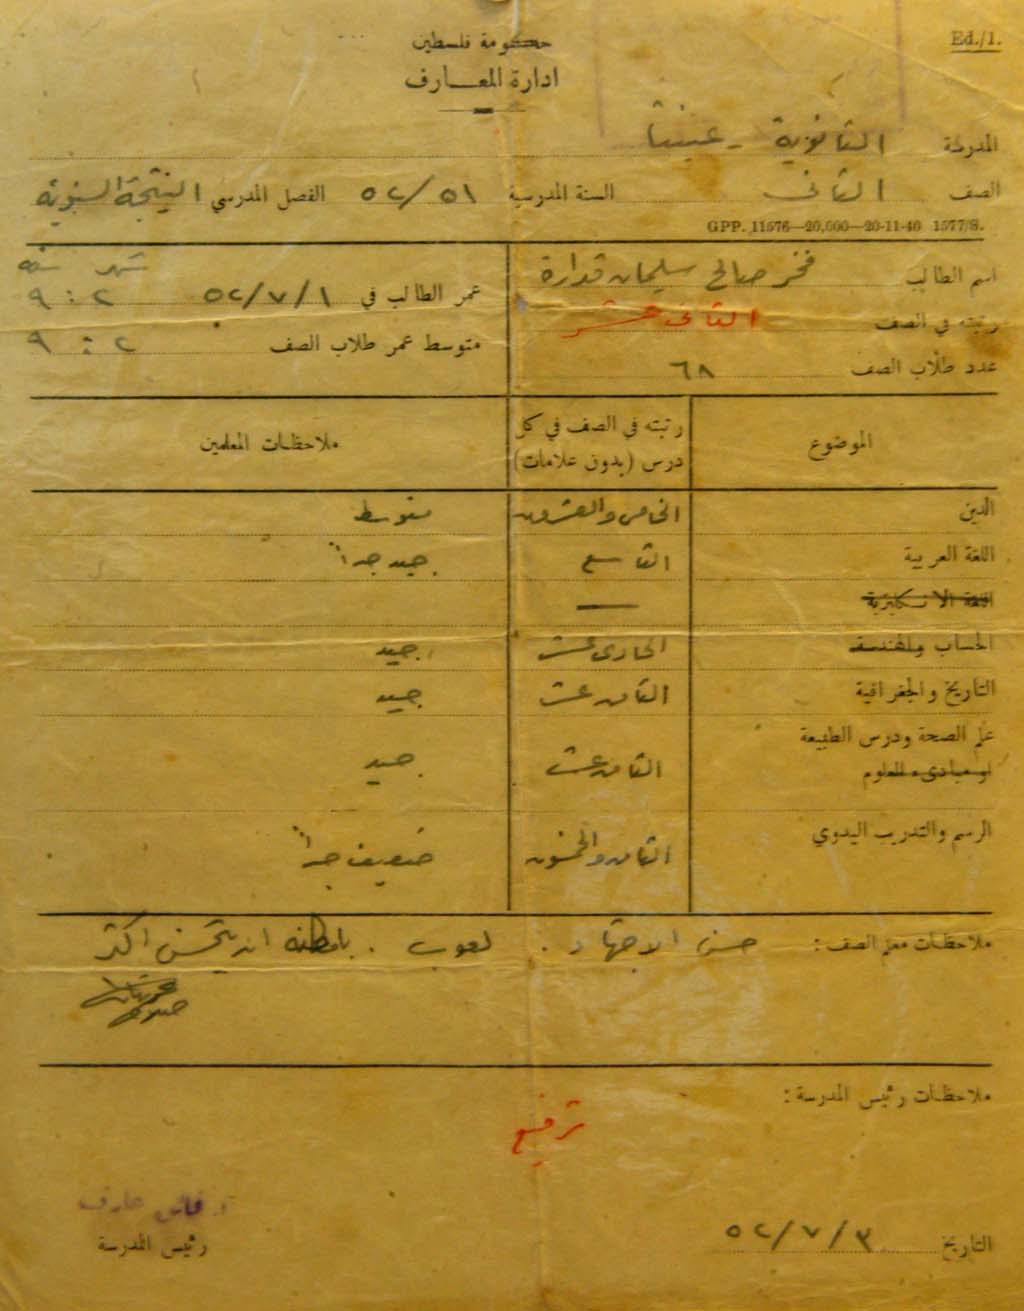 حكومة فلسطين
Ed./1.
ادارة المعارف
المدرسة الثانوية -
الصف الثاني السنة المدرسية ٥١/٥٢ الفصل المدرسي النتيجة السنوية
GPP. 11576—20,000—20-11-40 1577/S.
شهر سنة
اسم الطالب فخر صالح سليمان قدارة
عمر الطالب في ٥٢/٧/١ ٢ : ٩
رتبته في الصف الثاني عشر
متوسط عمر طلاب الصف ٢ : ٩
عدد طلاب الصف ٦٨
الموضوع رتبته في الصف في كل درس (بدون علامات) ملاحظات المعلمين
الدين الخامس والعشرون متوسط
اللغة العربية التاسع جيد جداً
اللغة الانكليزية —
الحساب والهندسة الحادي عشر جيد
التاريخ والجغرافية الثامن عشر جيد
علم الصحة ودرس الطبيعة
او مبادىء العلوم الثامن عشر جيد
الرسم والتدريب اليدوي الثامن والخمسون ضعيف جداً
ملاحظات معلم الصف : حسن الاجتهاد . لعوب . بامكانه ان يتحسن اكثر
ملاحظات رئيس المدرسة :
ترفيع
فائق عارف
رئيس المدرسة
التاريخ ٥٢/٧/٣